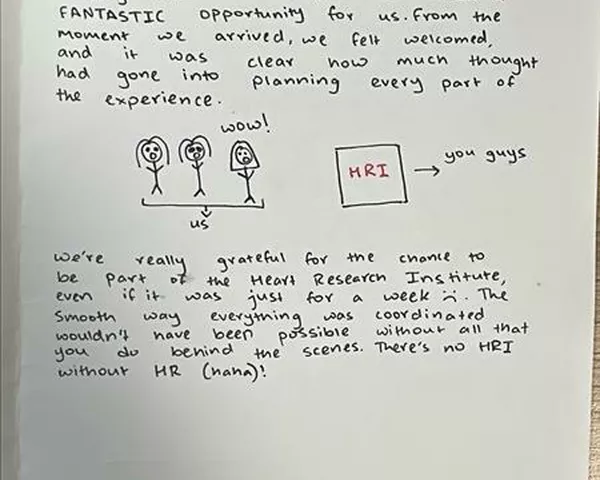 FANTASTIC opportunity for us. From the
moment we arrived, we felt welcomed,
and it was clear how much thought
had gone into planning every part of
the experience.
wow!
HRI → you guys
us
We're really grateful for the chance to
be part of the Heart Research Institute,
even if it was just for a week :(. The
smooth way everything was coordinated
wouldn't have been possible without all that
you do behind the scenes. There's no HRI
without HR (haha)!